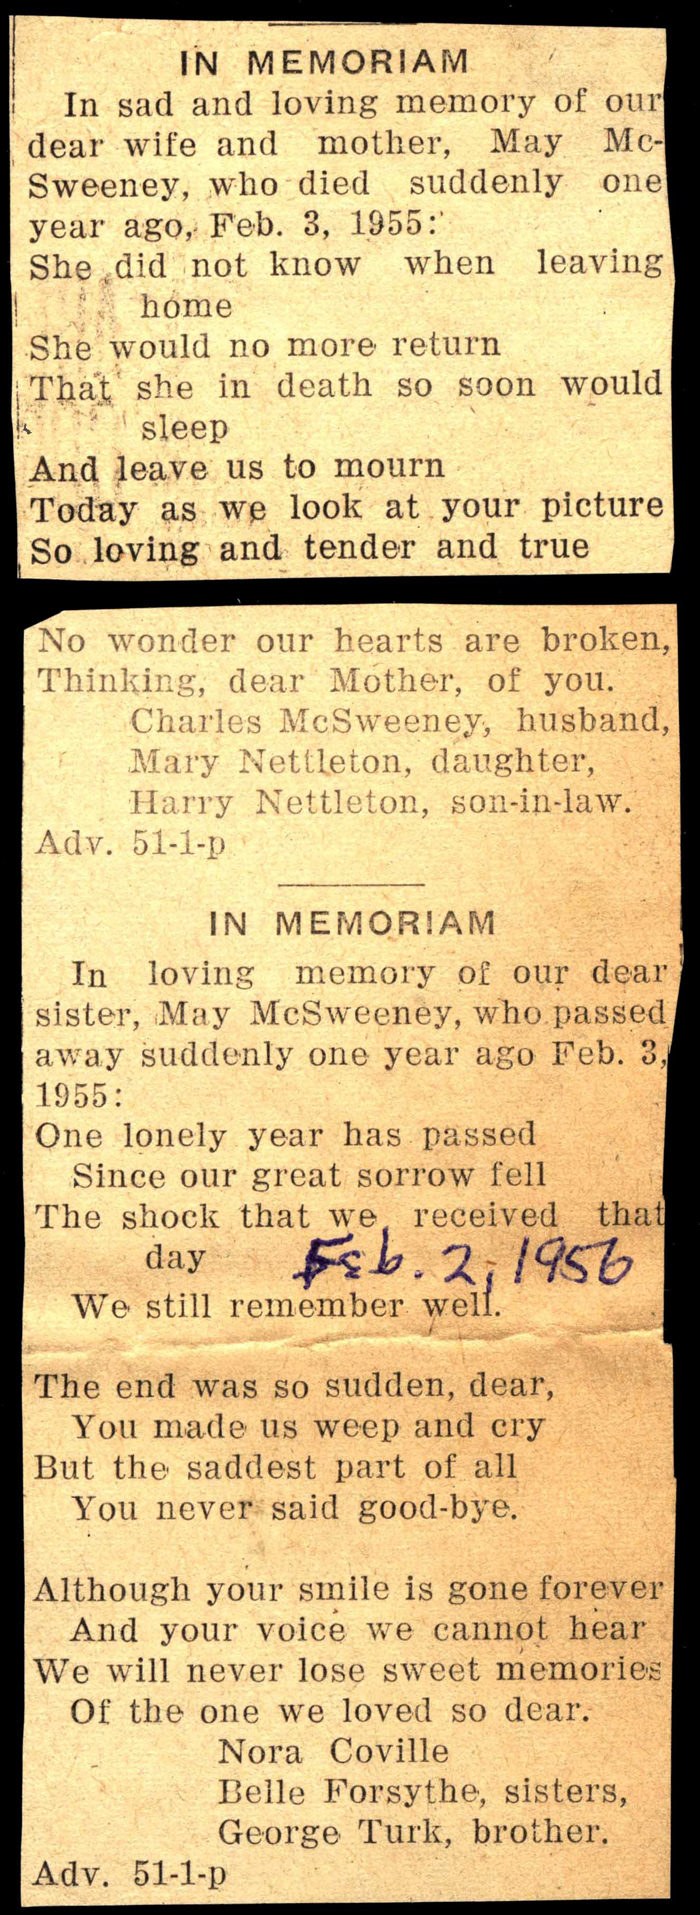 IN MEMORIAM
In sad and loving memory of our
dear wife and mother, May Mc-
Sweeney, who died suddenly one
year ago, Feb. 3, 1955:
She did not know when leaving
home
She would no more return
That she in death so soon would
sleep
And leave us to mourn
Today as we look at your picture
So loving and tender and true
No wonder our hearts are broken,
Thinking, dear Mother, of you.
Charles McSweeney, husband,
Mary Nettleton, daughter,
Harry Nettleton, son-in-law.
Adv. 51-1-p
IN MEMORIAM
In loving memory of our dear
sister, May McSweeney, who passed
away suddenly one year ago Feb. 3,
1955:
One lonely year has passed
Since our great sorrow fell
The shock that we received that
day
Feb. 2, 1956
We still remember well.
The end was so sudden, dear,
You made us weep and cry
But the saddest part of all
You never said good-bye.
Although your smile is gone forever
And your voice we cannot hear
We will never lose sweet memories
Of the one we loved so dear.
Nora Coville
Belle Forsythe, sisters,
George Turk, brother.
Adv. 51-1-p